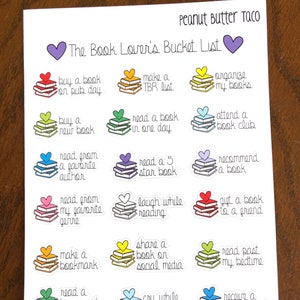 Peanut Butter Taco
The Book Lover's Bucket List
buy a book
on pub day
make a
TBR list
organize
my books
buy a
new book
read a book
in one day
attend a
book club
read from
a favorite
author
read a 5
star book
recommend
a book
read from
my favorite
genre
laugh while
reading
gift a book
to a friend
make a
bookmark
share a
book on
social media
read past
my bedtime
read a
cry while
receive a